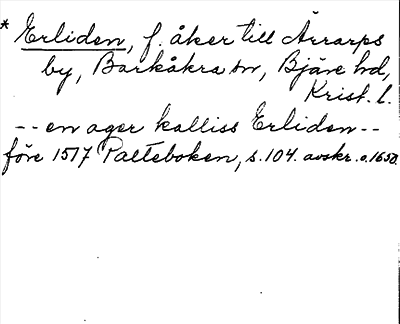 * Erliden, f. åker till Ärrarps
by, Barkåkra sn, Bjäre hd,
Krist. l.
-- en ager kalliss Erliden --
före 1517 Palteboken, s. 104. avskr. o. 1650.